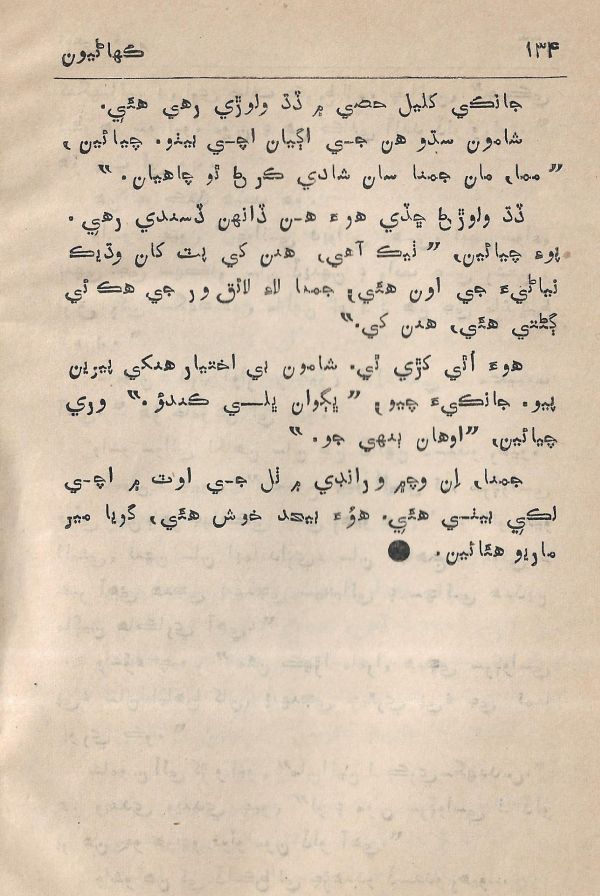 ۱۳۴ ڪهاڻيون
جانڪي کليل حصي ۾ ڏڌ ولوڙي رهي هئي.
شامون سڌو هن جي اڳيان اچي بيٺو. چيائين،
”مما، مان جمنا سان شادي ڪرڻ ٿو چاهيان.“
ڏڌ ولوڙڻ ڇڏي هوءَ هن ڏانهن ڏسندي رهي.
پوءِ چيائين، ”ٺيڪ آهي، هنن کي پٽ کان وڌيڪ
نياڻيءَ جي اون هئي، جمنا لاءِ لائق ور جي هڪ ئي
ڳڻتي هئي، هنن کي.“
هوءَ اُٿي کڙي ٿي. شامون بي اختيار هنکي پيرين
پيو. جانڪيءَ چيو، ”ڀڳوان ڀلي ڪندؤ.“ وري
چيائين، ”اوهان ٻنهي جو.“
جمنا، اِن وچ ۾ ورانڊي ۾ ٿل جي اوٽ ۾ اچي
لڪي بيٺي هئي. هوُءَ بيحد خوش هئي، گويا مير
ماريو هئائين.